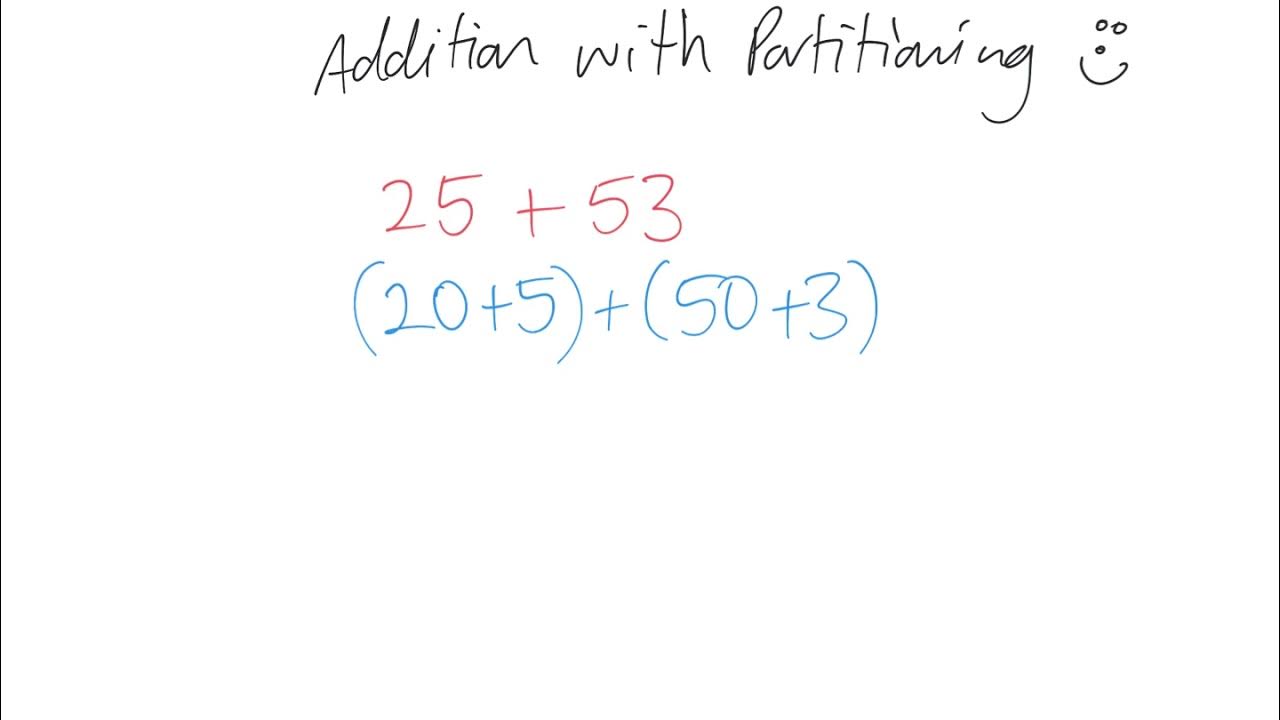 Addition with Partitioning
25 + 53
(20+5)+(50+3)